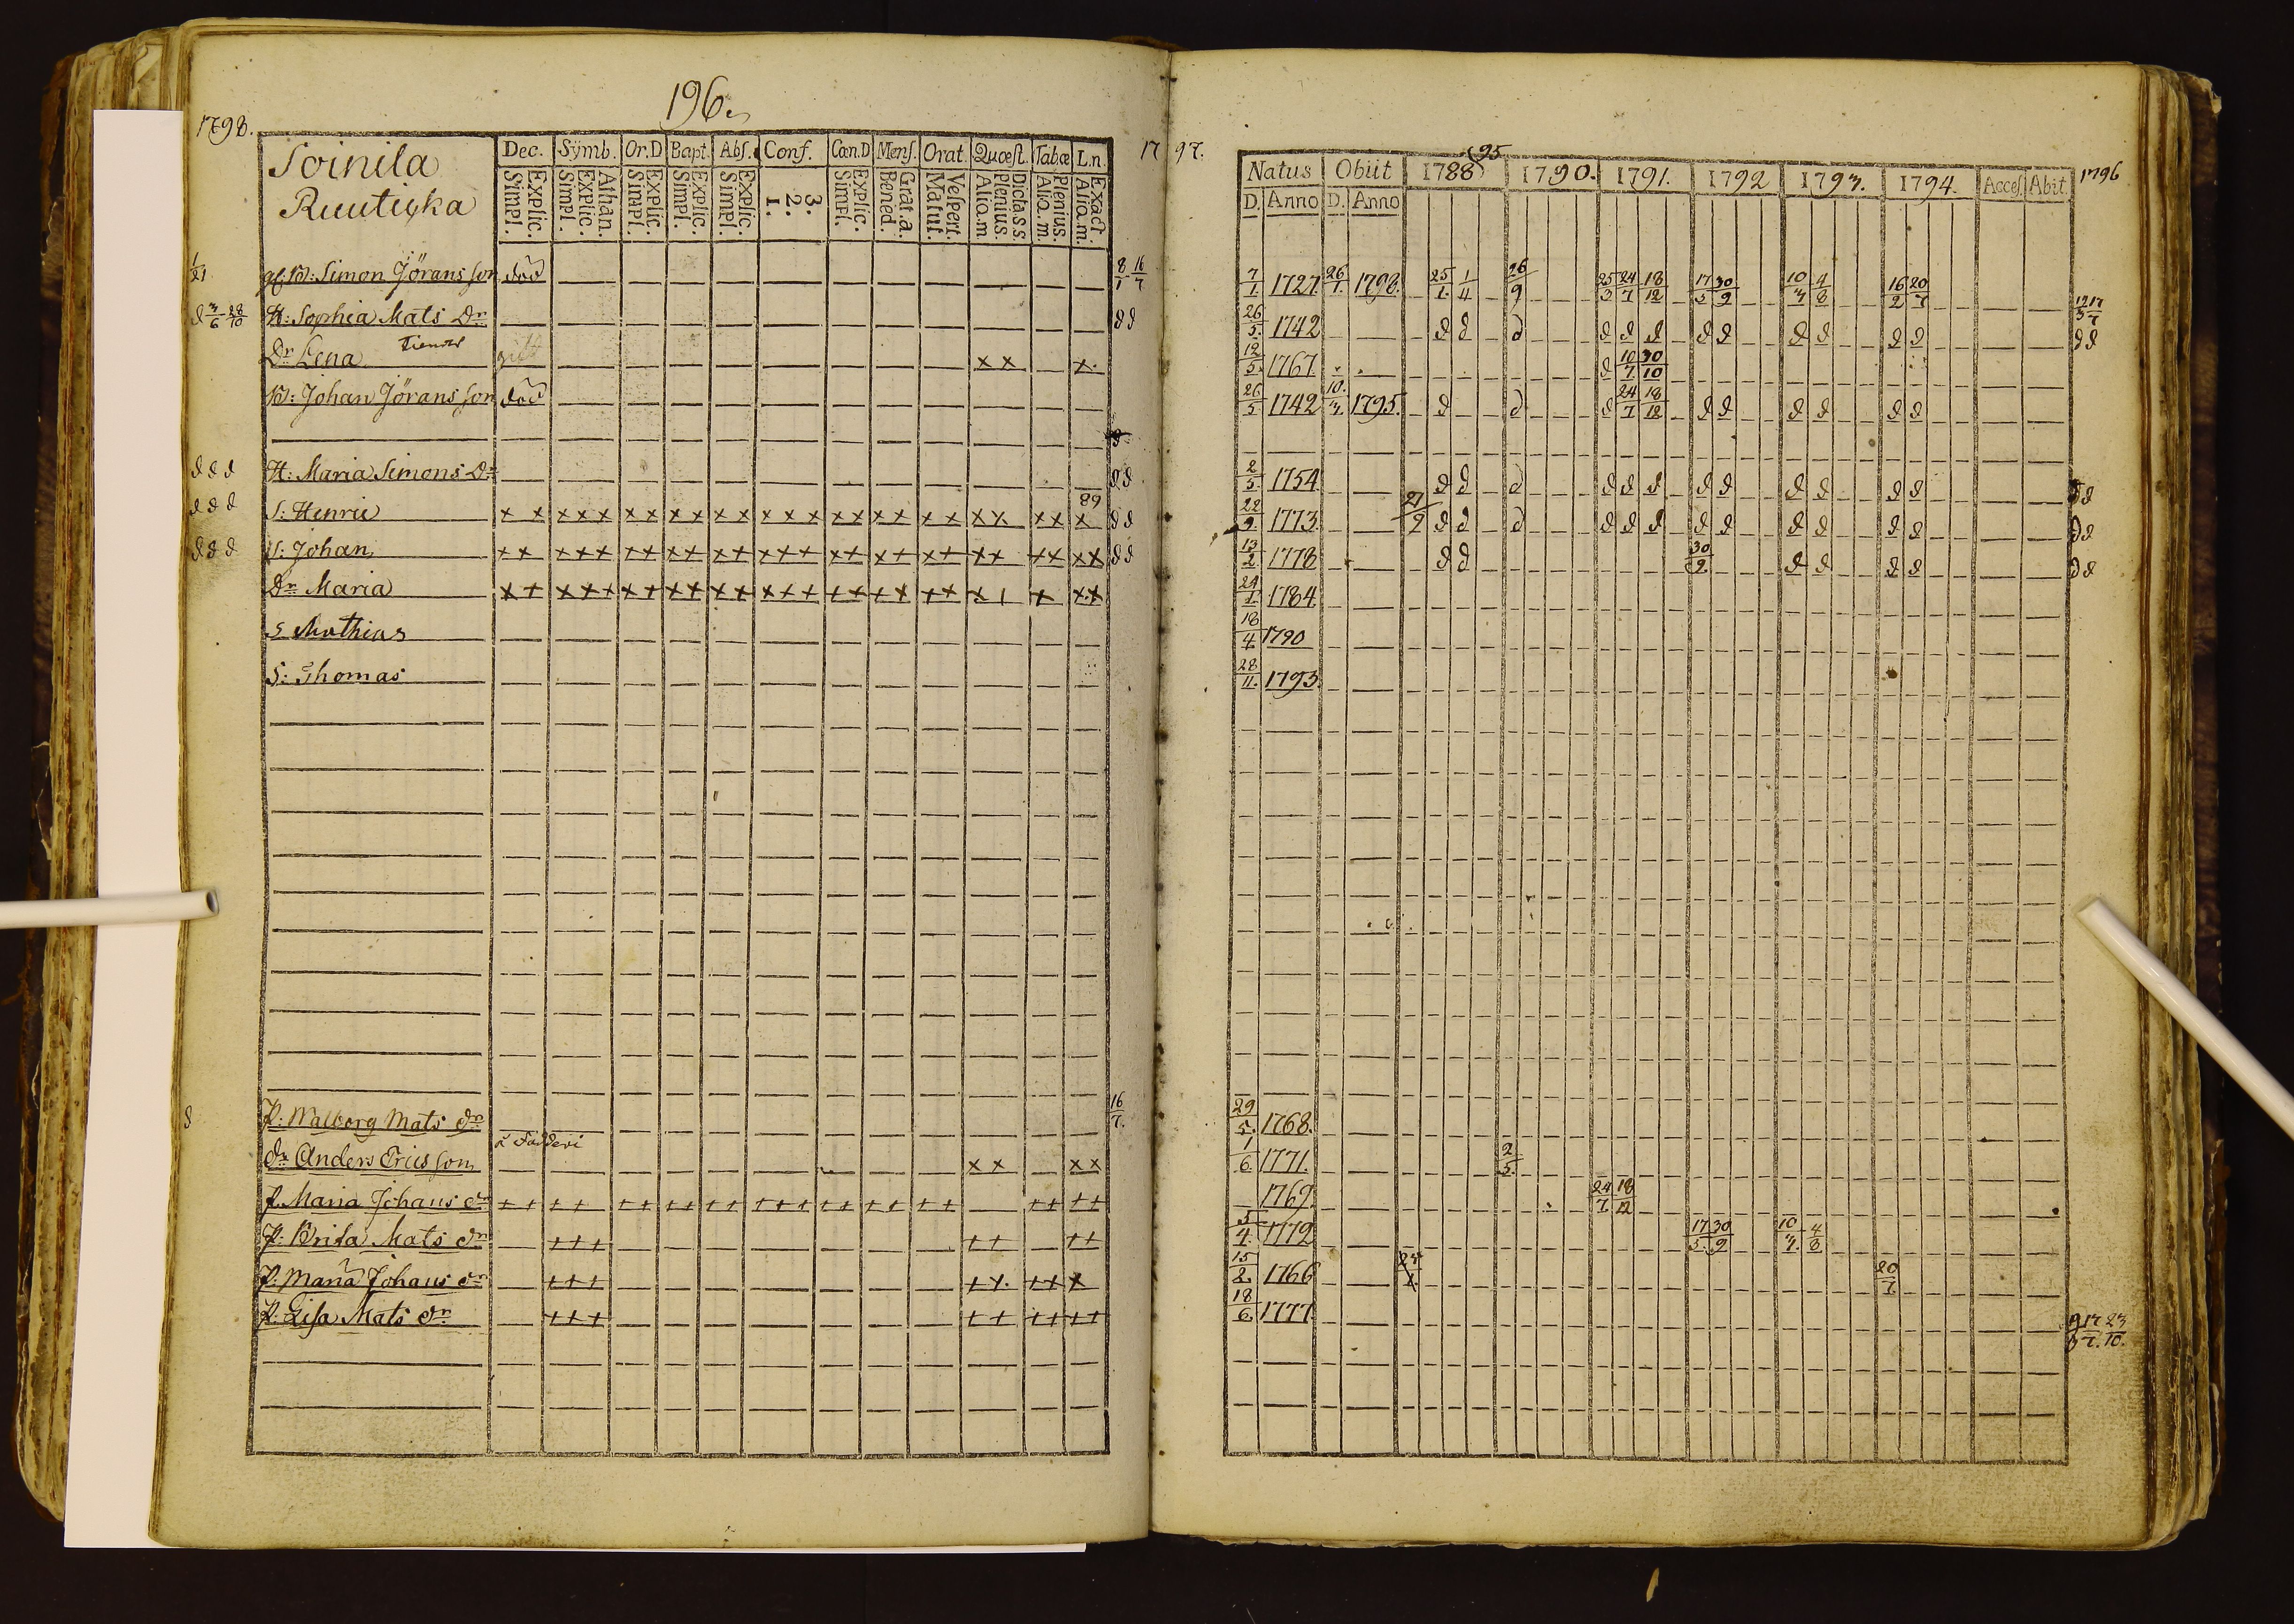 196.
1798.
Soinila
Ruutikka
Dec. Symb. Or.D Bapt. Abs. Conf. Cœn.D Mens. Orat. Quæst. Tabæ L.n.
Explic. Simpl. Athan. Explic. Simpl. Explic. Simpl. Explic. Simpl. Explic. Simpl. 3. 2. 1. Explic. Simpl. Grat.a. Bened. Vespert. Matut. Dicta.s.s. Plenius. Alio.m. Plenius. Alio.m. Exact. Alio.m.
B: Simon Jörans son död 8/1 16/7
d 28/10 H: Sophia Mats Dr d d
Dr Lena x x x
B: Johan Jörans son död
d d d H: Maria Simons Dr d d
89
d d d S: Henric x x x x x x x x x x x x x x x x x x x x x x x x x x d d
d d d S: Johan x x x x x x x x x x x x x x x x x x x x x x x x x x x d d
Dr Maria
S Mathias
S: Thomas
d P: Walborg Mats dr 16/7
Dr Anders Erics son x x x x
P. Maria Johans dr
P: Brita Mats dr
P: Maria Johans dr
P: Lisa Mats dr
17 97.
95
Natus Obiit 1788 1790. 1791. 1792 1793. 1794. Acces. Abit. 1796
D. Anno D. Anno
7/1 1727. 26/1 1798. 25/1. 1/4 26/9 25/3 24/7 18/12 17/5 30/9 10/3 4/8 16/2 20/7
26/5. 1742 d d d d d d d d d d d d d d
12/5. 1767. d 10/7. 30/10
26/5 1742 10./3. 1795. d d d 24/7 18/12 d d d d d d
2/5. 1754. d d d d d d d d d d d d d d
22/9. 1773. 27/9 d d d d d d d d d d d d d d
13/2. 1778 d d 30/9. d d d d d d
24/1. 1784.
18/4 1790
28/11. 1793.
29/5. 1768.
1/6. 1771. 2/5.
1769. 24/7. 18/12
5/4. 1772 17/5. 30/9 10/3. 4/8
15/2. 1766 20/7
18/6. 1777.